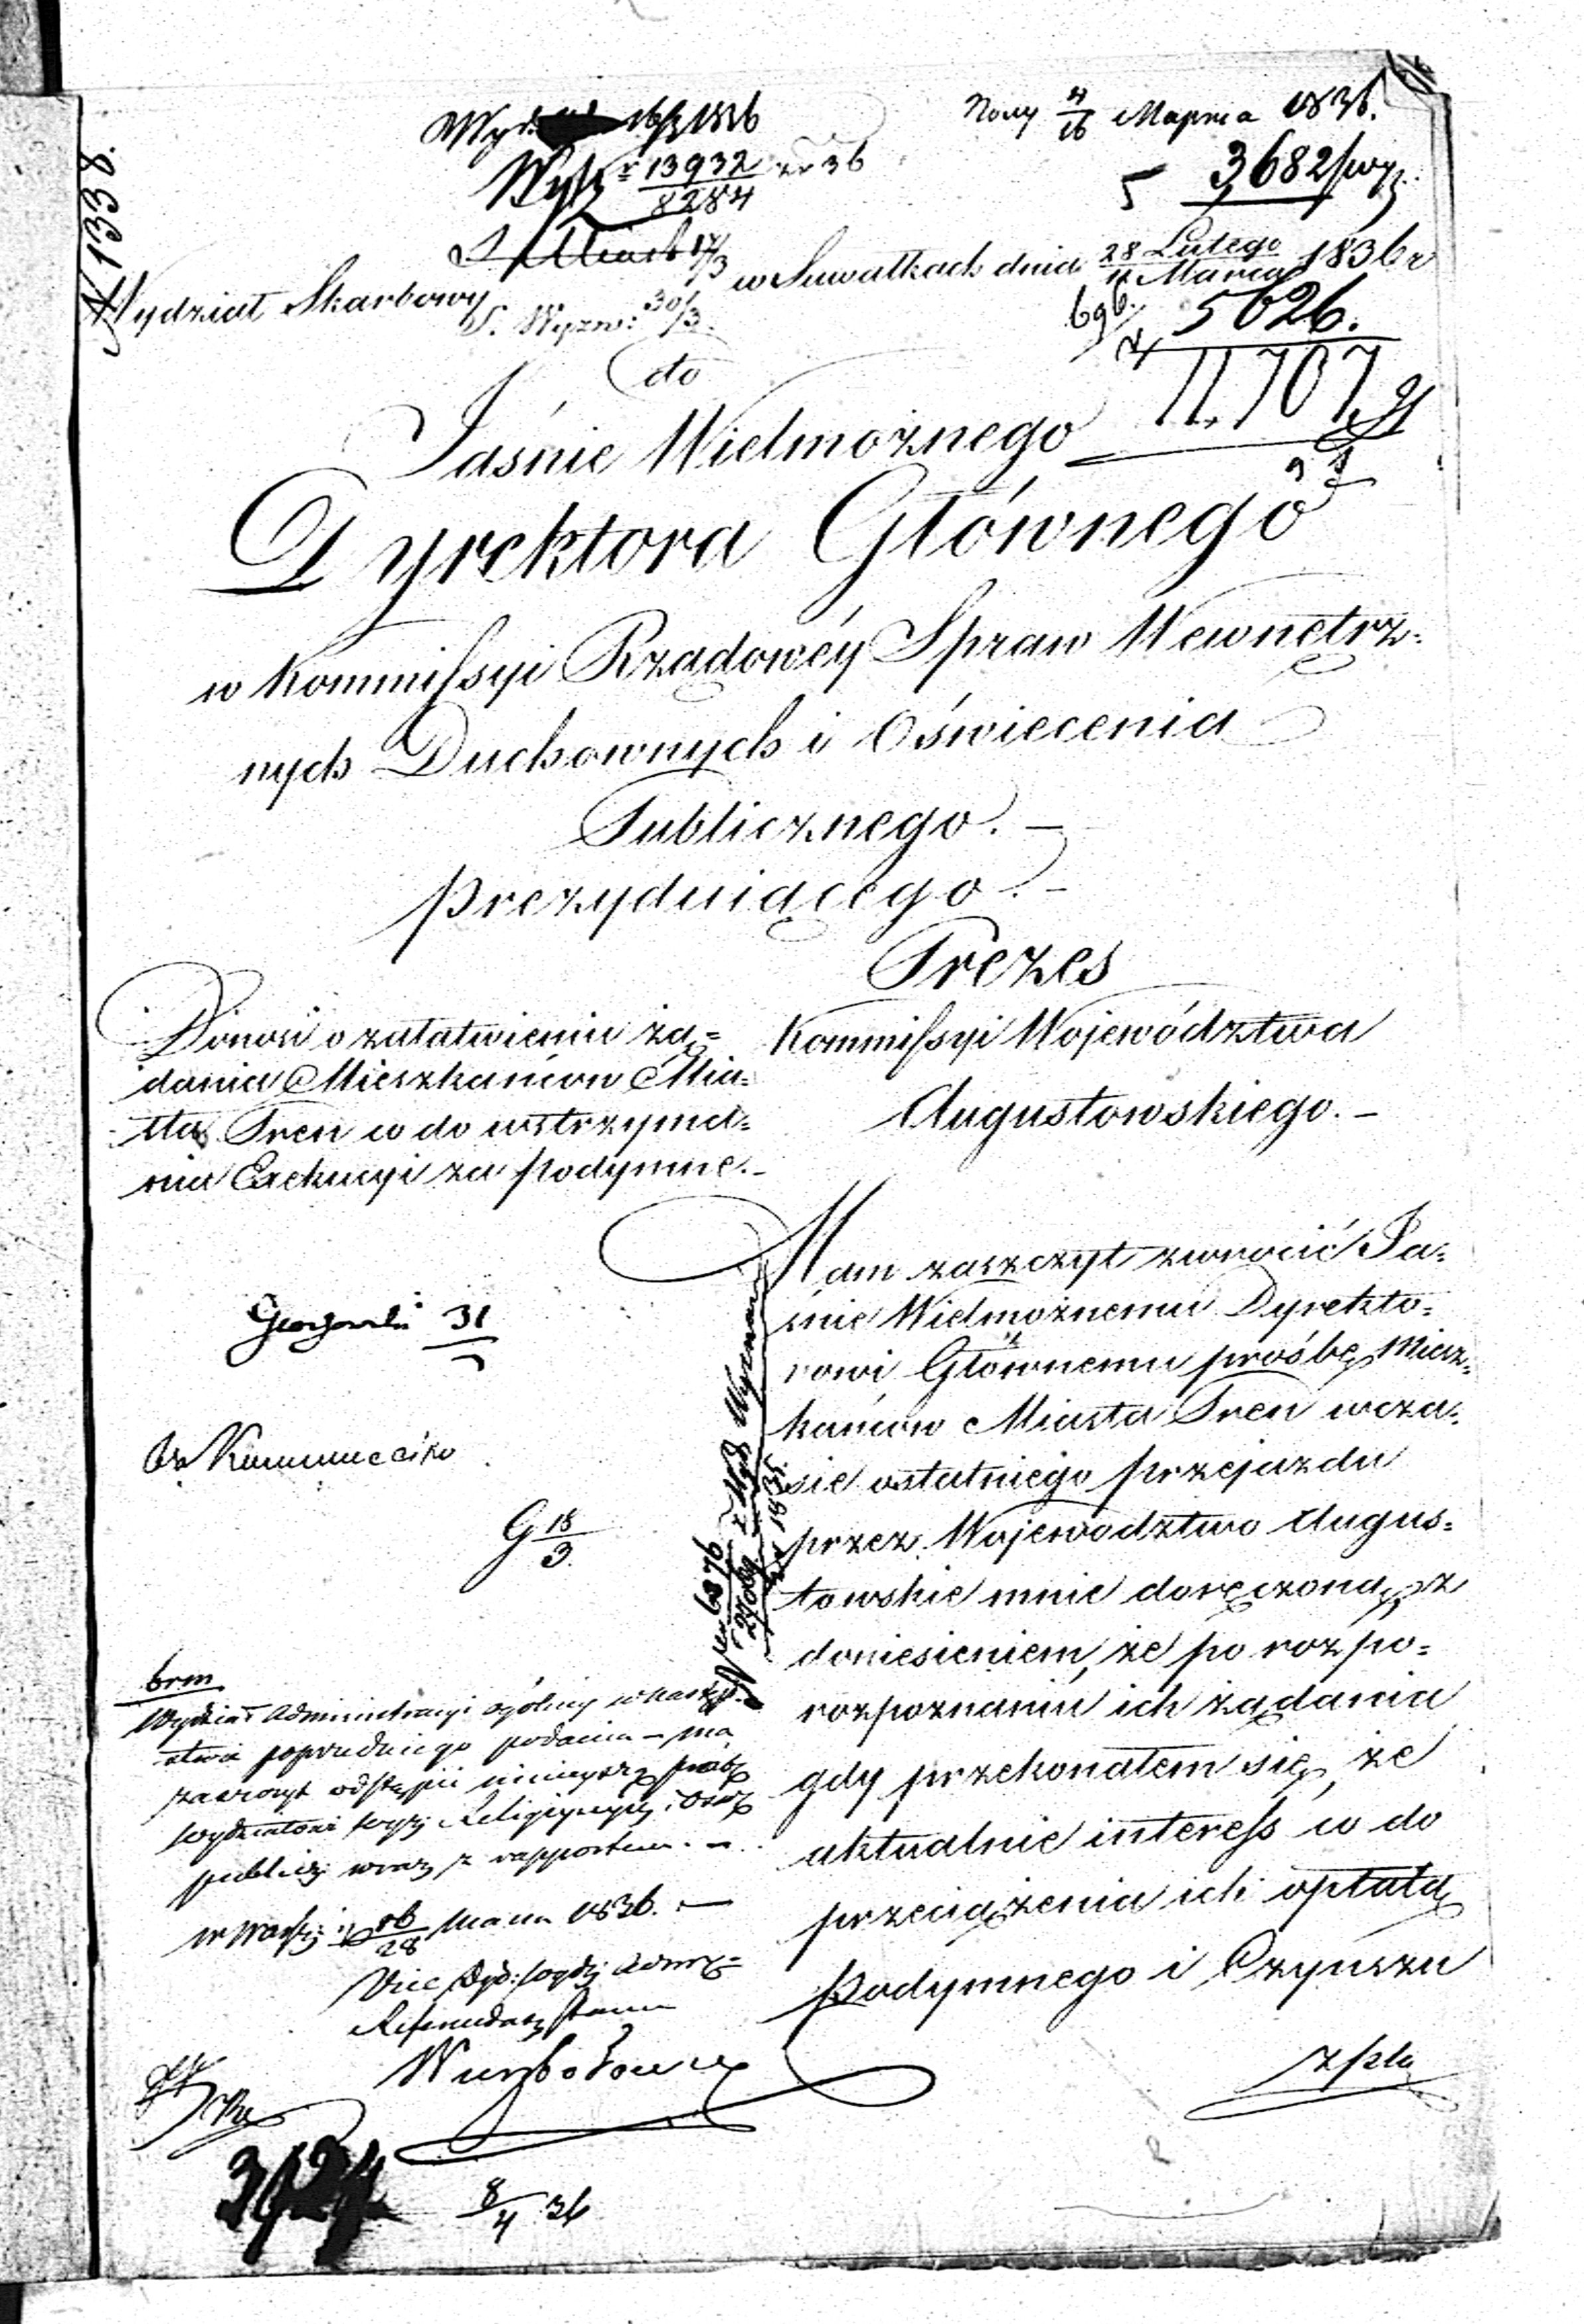 N 1338.
16/3 1836
Wyk: 13932/8284 36
17/3
Полу 4/16 Марта 1836.
3682
Wydział Skarbowy
S. Wyzn: 30/3.
w Suwałkach dnia 28 Lutego/11 Marca 1836 r
5626.
11,707
do
Jaśnie Wielmożnego
Dyrektora Głównego
w Kommissyi Rządowéy Spraw Wewnętrz=
nych Duchownych i Oświecenia
Publicznego. —
prezyduiącego. —
Prezes
Kommissyi Województwa
Augustowskiego. —
Donosi o załatwieniu żą=
dania Mieszkańców Mia=
sta Pren co do wstrzyma=
nia Exekucyi za podymne. —
Mam zaszczyt zwrócić Ja=
śnie Wielmożnemu Dyrekto=
rowi Głównemu prośbę Miesz=
kańców Miasta Pren w cza=
sie ostatniego przejazdu
przez Województwo Augus=
towskie mnie doręczoną, z
doniesieniem, że po rozpo=
rozpoznaniu ich żądania
gdy przekonałem się, że
aktualnie interess co do
przeciążenia ich opłatą
Podymnego i Czynszu
31
G 18/3.
N 6876
1835.
brm
Wydział Administracyi ogólney w
poprzedniego podania — ma
zaszczyt odstąpić ninieyszą prośbę
Wydziałowi Wyzn: Religiynych i Oświ:
publicz: wraz z rapportem. —
w Warsz: 16/28 Marca 1836. —
Vice Dyr: Wydz: Admi:
Referendarz Stanu
8/4 36